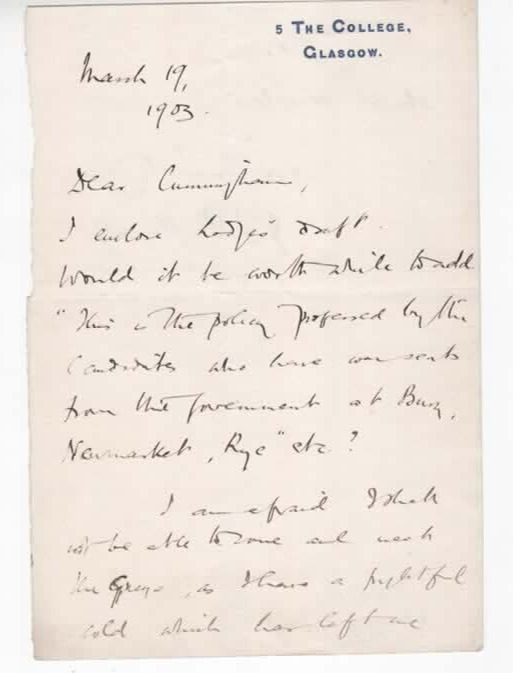 5 THE COLLEGE,
GLASGOW.
March 19,
1903.
Dear Cunningham,
I enclose Lodge's draft.
Would it be worth while to add
"This is the policy professed by the
candidates who have won seats
from the government at Bury,
Newmarket, Rye" etc?
I am afraid I shall
not be able to come and meet
the Greys, as I have a frightful
cold which has left me